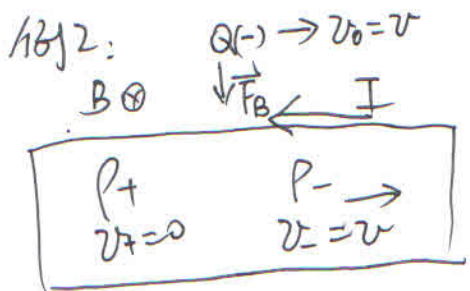 例2: Q(-) → v₀=v
B ⊗ ↓F⃗_B I
ρ+ ρ- →
v+=0 v-=v